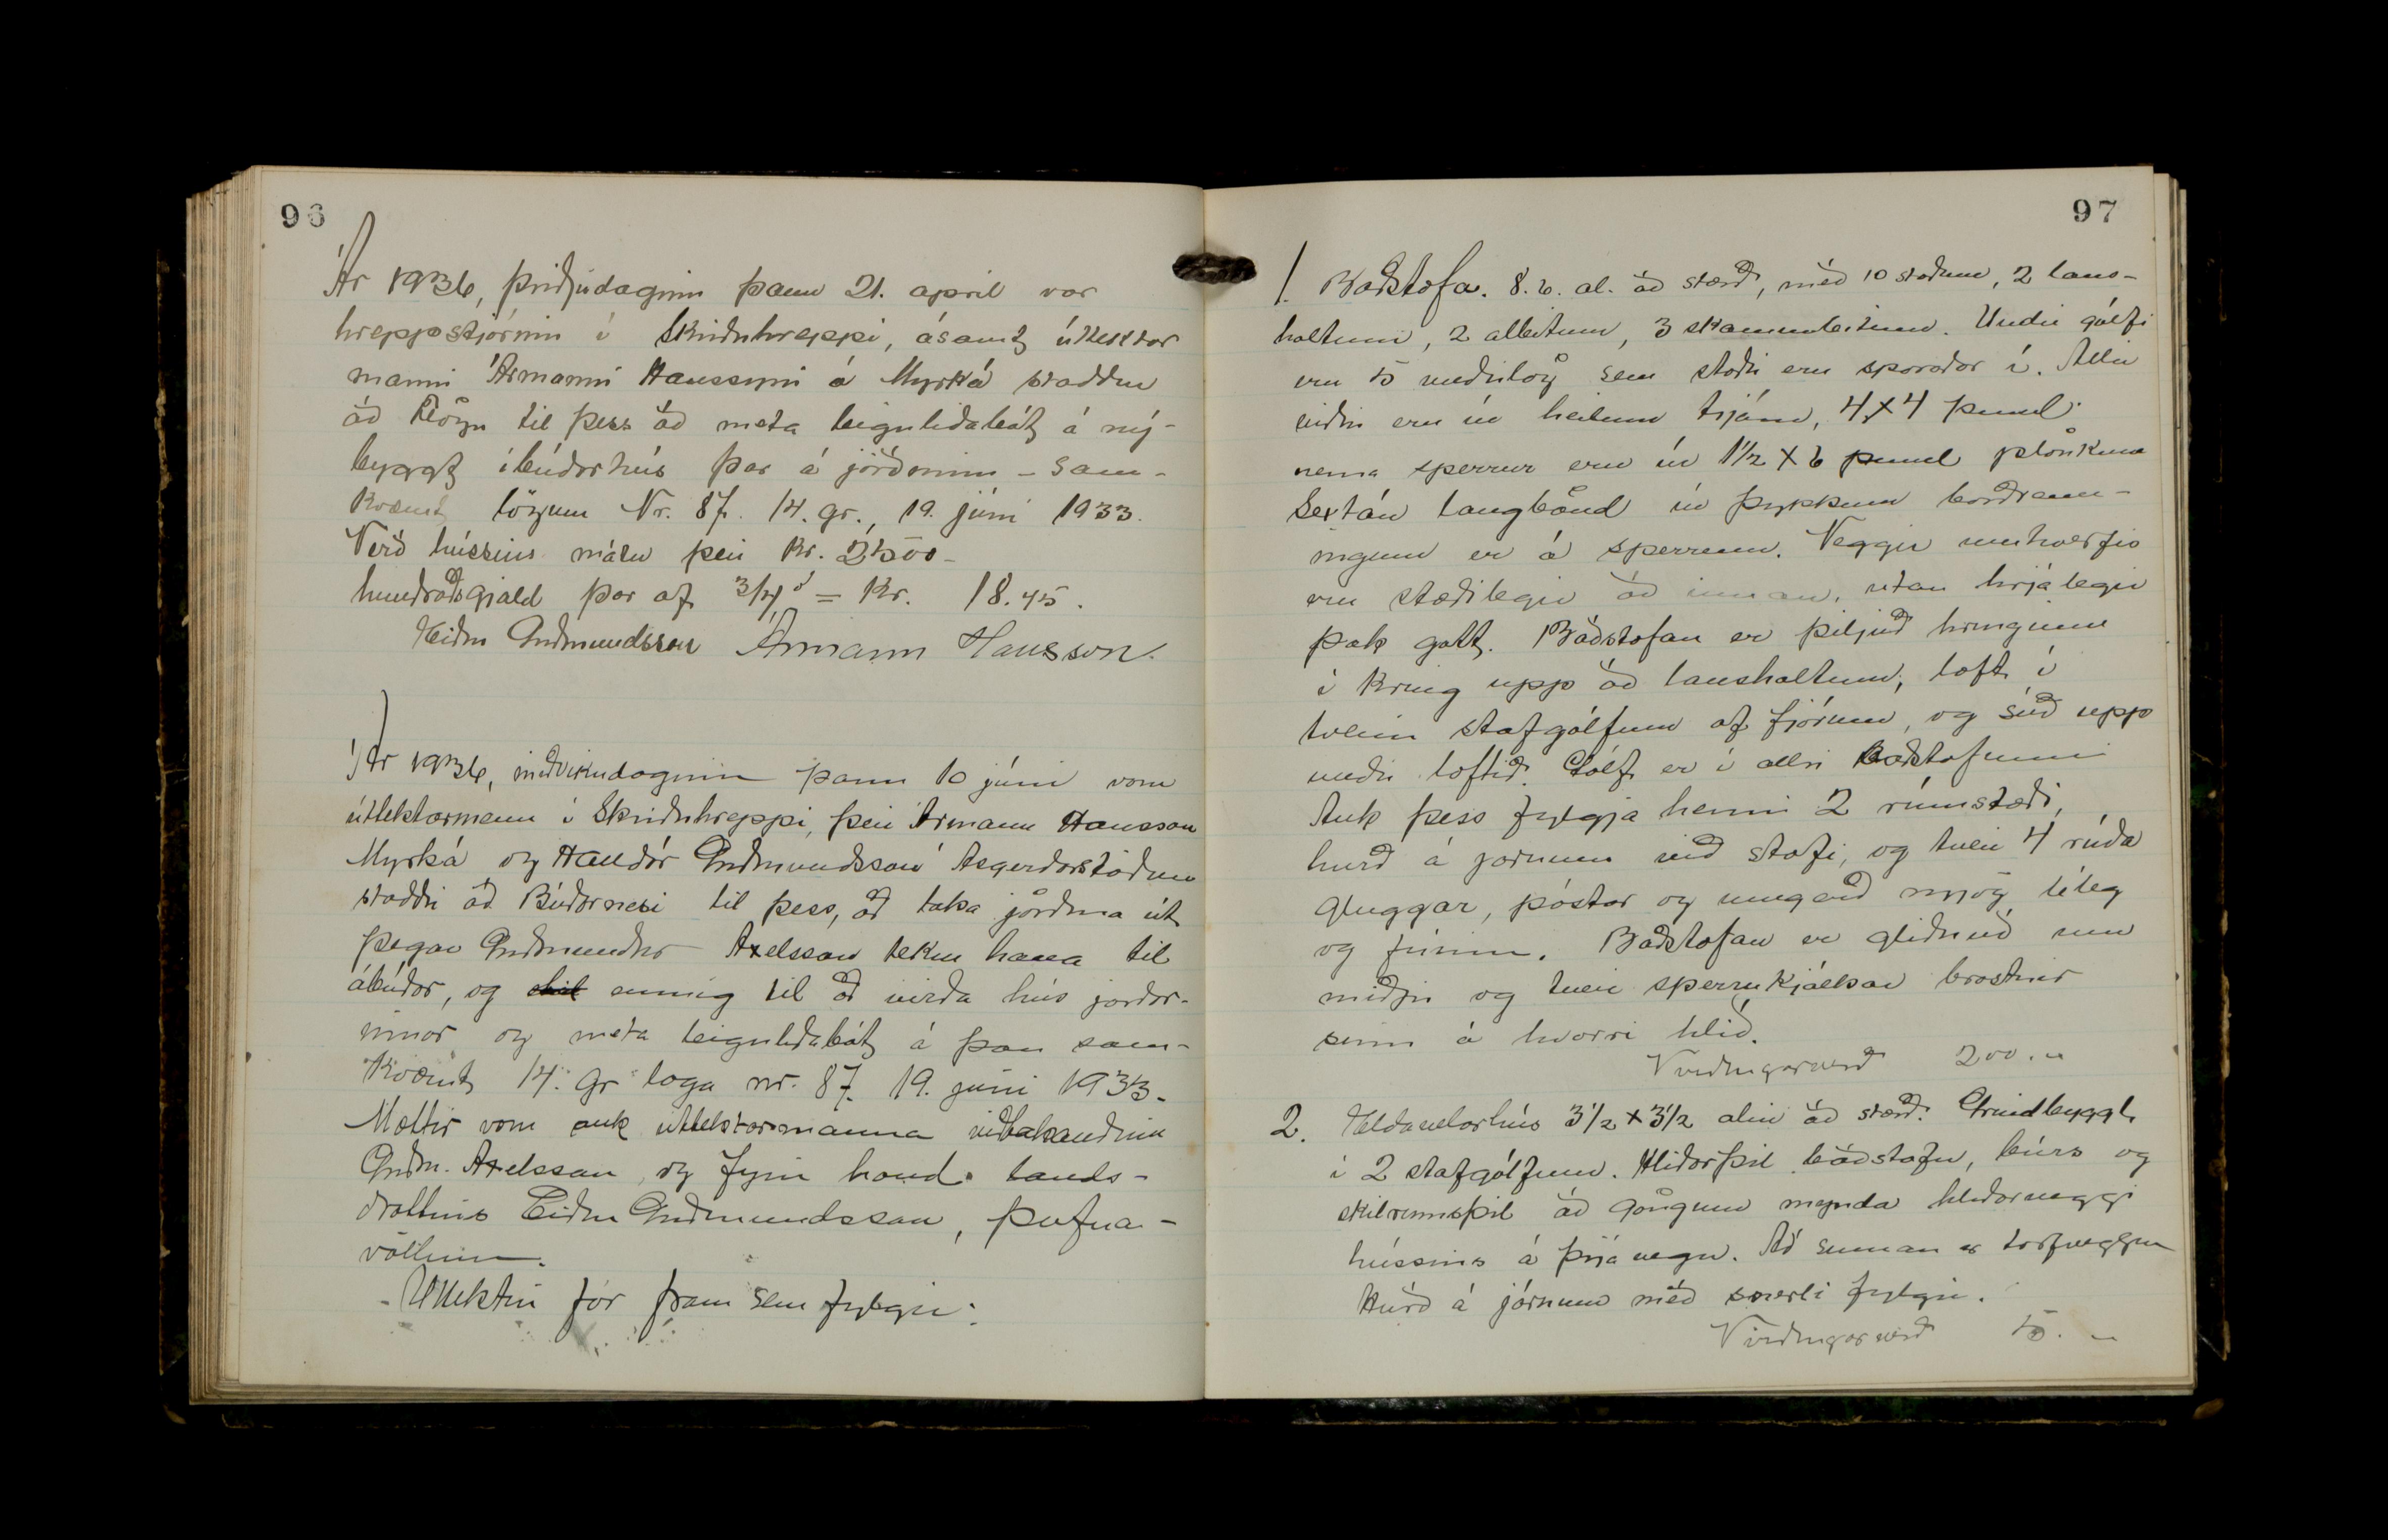 96
Ár 1936, þriðjudaginn þann 21. apríl var
hreppstjórinn í Skriðuhreppi, ásamt úttektar
manni Ármanni Hanssyni á Myrká staddur
að Flögu til þess að meta leiguliðabót á ný-
byggt íbúðarhús þar á jörðinni - sam-
kvæmt lögum Nr. 87. 14. gr., 19. júni 1933.
Verð hússins mátu þeir Kr. 2500-
hundraðsgjald þar af 3/4 = Kr. 18.75.
Eiður Guðmundsson Ármann Hansson.
Ár 1936, miðvikudaginn þann 10 júni voru
úttektarmenn í Skriðuhreppi, þeir Ármann Hansson
Myrká og Halldór Guðmundsson Ásgerðarstöðum
staddir að Búðarnesi til þess, að taka jörðina út
þegar Guðmundur Axelsson tekur hana til
ábúðar, og einnig til að virða hús jarðar-
innar og meta leiguliðabót á þau sam-
kvæmt 14. gr laga nr. 87. 19. júni 1933.
Mættir voru auk úttektarmanna viðtakandinn
Guðm. Axelsson, og fyrir hönd lands-
drottins Eiður Guðmundsson, Þúfna-
völlum.
- Úttektin fór fram sem fylgir:
97
1. Baðstofa. 8.6. al. að stærð, með 10 stoðum, 2 laus-
holtum, 2 allbitum, 3 skammbitum. Undir gólfi
eru 5 undirlög sem stoðir eru sporaðar í. Allir
viðir eru úr heilum trjám, 4x4 þuml.
nema sperrur eru úr 1 1/2 x 6 þuml plönkum
Sextán langbönd úr þykkum borðrenn-
ingum er á sperrum. Veggir umhverfis
eru stæðilegir að innan, utan hrjálegir
þak gott. Baðstofan er þiljuð hringinn
í kring upp að lausholtum, loft í
tveim stafgólfum af fjórum, og súð upp
undir loftið. Gólf er í allri baðstofunni
Auk þess fylgja henni 2 rúmstæði,
hurð á járnum við stafi, og tveir 4 rúða
gluggar, póstar og umgerð mjög léleg
og fúinn. Baðstofan er gliðnuð um
miðju og tveir sperrukjálkar brostnir
sinn á hvorri hlið.
Virðingarverð 200.-
2. Eldavélarhús 3 1/2 x 3 1/2 alin að stærð. Grindbyggt
í 2 stafgólfum. Hliðarþil baðstofu, búrs og
skilrúmsþil að göngum mynda hliðarveggi
hússins á þrjá vegu. Að sunnan er torfveggur
Hurð á járnum með snerli fylgir.
Virðingarverð 15.-